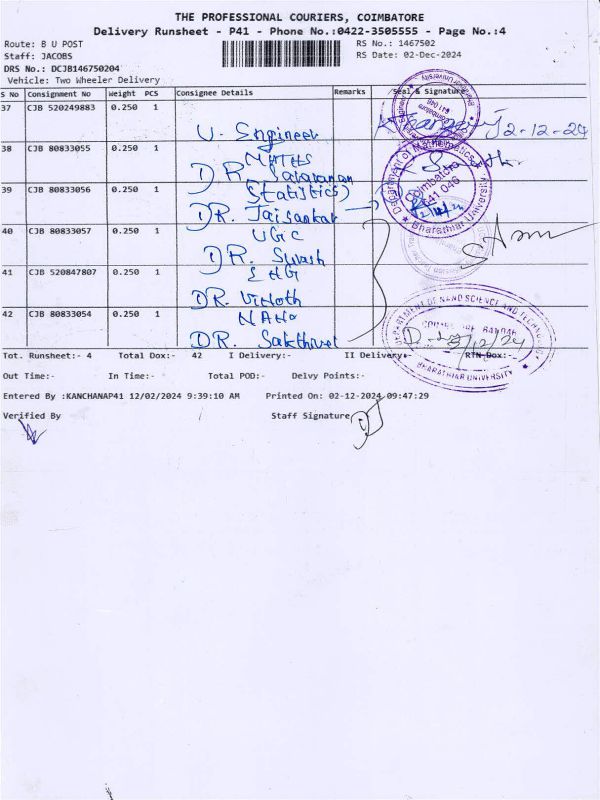 THE PROFESSIONAL COURIERS, COIMBATORE
Delivery Runsheet - P41 - Phone No.:0422-3505555 - Page No.:4
Route: B U POST RS No.: 1467502
Staff: JACOBS RS Date: 02-Dec-2024
DRS No.: DCJB146750204
Vehicle: Two Wheeler Delivery
S No Consignment No Weight PCS Consignee Details Remarks Seal & Signature
37 CJB 520249883 0.250 1
U. Engineer 2-12-24
38 CJB 80833055 0.250 1 MATHS
DR. Saravanan
39 CJB 80833056 0.250 1 Statistics)
DR. Jaisankar
40 CJB 80833057 0.250 1 UGC
DR. Suresh
41 CJB 520847807 0.250 1 ENG
DR. Vinoth
42 CJB 80833054 0.250 1 NANO
DR. Sakthivel
Department of Mathematics
Coimbatore
641 046
Bharathiar University
DEPARTMENT OF NANO SCIENCE AND TECHNOLOGY
BHARATHIAR UNIVERSITY
Tot. Runsheet:- 4 Total Dox:- 42 I Delivery:- II Delivery:- RTN Dox:-
Out Time:- In Time:- Total POD:- Delvy Points:-
Entered By :KANCHANAP41 12/02/2024 9:39:10 AM Printed On: 02-12-2024 09:47:29
Verified By Staff Signature